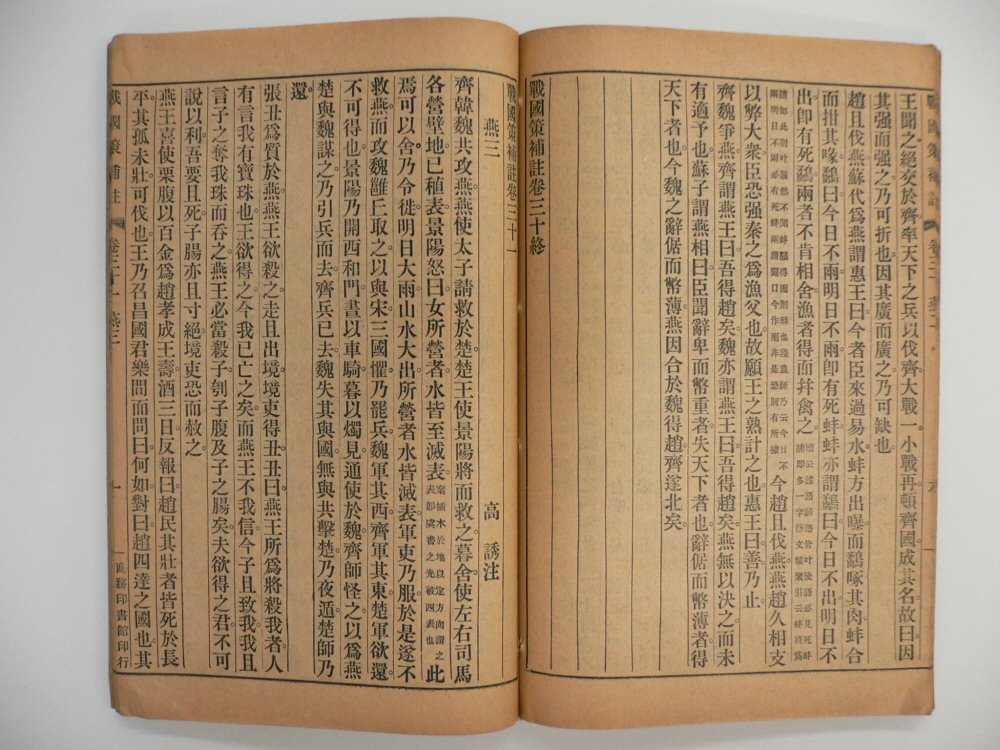 戰國策補註
卷三十
燕二
王聞之絕交於齊率天下之兵以伐齊大戰一小戰再頓齊國成其名故曰因
其强而强之乃可折也因其廣而廣之乃可缺也
趙且伐燕蘇代爲燕謂惠王曰今者臣來過易水蚌方出曝而鷸啄其肉蚌合
而拑其喙鷸曰今日不雨明日不雨卽有死蚌蚌亦謂鷸曰今日不出明日不
出卽有死鷸兩者不肯相舍漁者得而幷禽之 云謠語諺語皆叶後語必見死蚌
脯卽多一字藝文類聚引云蚌將爲
脯如此則叶韻然不聞蚌鷸得雨則解也陸農師乃云今日不
兩明日不兩必有死蚌兩謂闢口今作雨非是恐別有所據 今趙且伐燕燕趙久相支
以弊大衆臣恐强秦之爲漁父也故願王之熟計之也惠王曰善乃止
齊魏爭燕齊謂燕王曰吾得趙矣魏亦謂燕王曰吾得趙矣燕無以決之而未
有適予也蘇子謂燕相曰臣聞辭卑而幣重者失天下者也辭倨而幣薄者得
天下者也今魏之辭倨而幣薄燕因合於魏得趙齊遂北矣
戰國策補註卷三十終
戰國策補註卷三十一
燕三 高誘注
齊韓魏共攻燕燕使太子請救於楚楚王使景陽將而救之暮舍使左右司馬
各營壁地已稙表景陽怒曰女所營者水皆至滅表 案插木於地以定方向謂之
表卽虞書之光被四表也 此
焉可以舍乃令徙明日大雨山水大出所營者水皆滅表軍吏乃服於是遂不
救燕而攻魏雝丘取之以與宋三國懼乃罷兵魏軍其西齊軍其東楚軍欲還
不可得也景陽乃開西和門晝以車騎暮以燭見通使於魏齊師怪之以爲燕
楚與魏謀之乃引兵而去齊兵已去魏失其與國無與共擊楚乃夜遁楚師乃
還
張丑爲質於燕燕王欲殺之走且出境境吏得丑丑曰燕王所爲將殺我者人
有言我有寶珠也王欲得之今我已亡之矣而燕王不我信今子且致我我且
言子之奪我珠而吞之燕王必當殺子刳子腹及子之腸矣夫欲得之君不可
說以利吾要且死子腸亦且寸絕境吏恐而赦之
燕王喜使栗腹以百金爲趙孝成王壽酒三日反報曰趙民其壯者皆死於長
平其孤未壯可伐也王乃召昌國君樂間而問曰何如對曰趙四達之國也其
戰國策補註
卷三十一 燕三
一
商務印書館印行